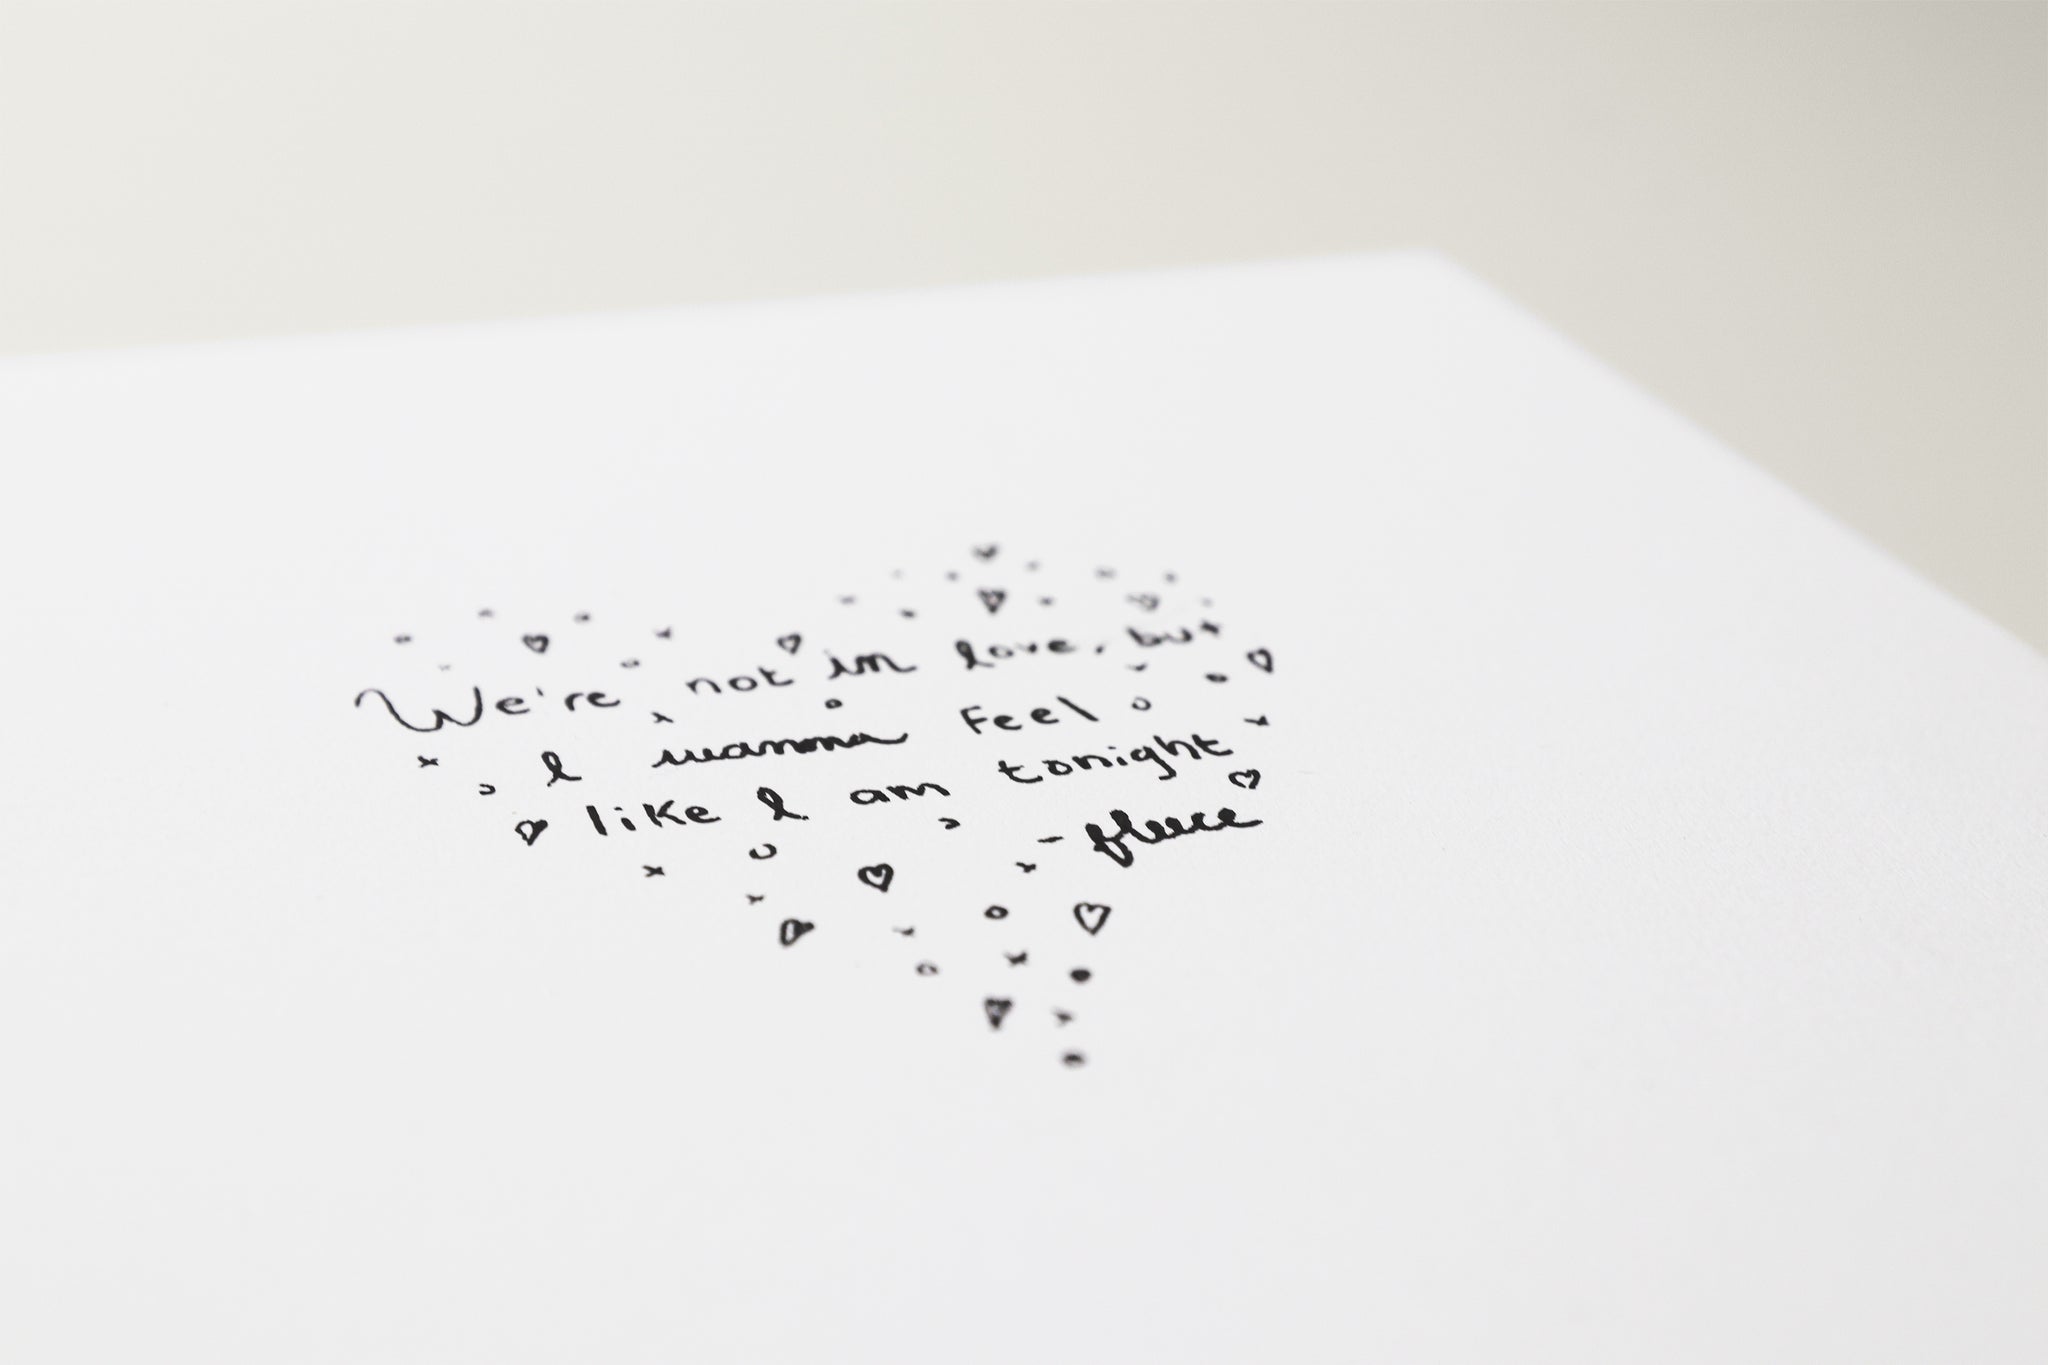 We're not in love, but
I wanna feel
like I am tonight
- fleece